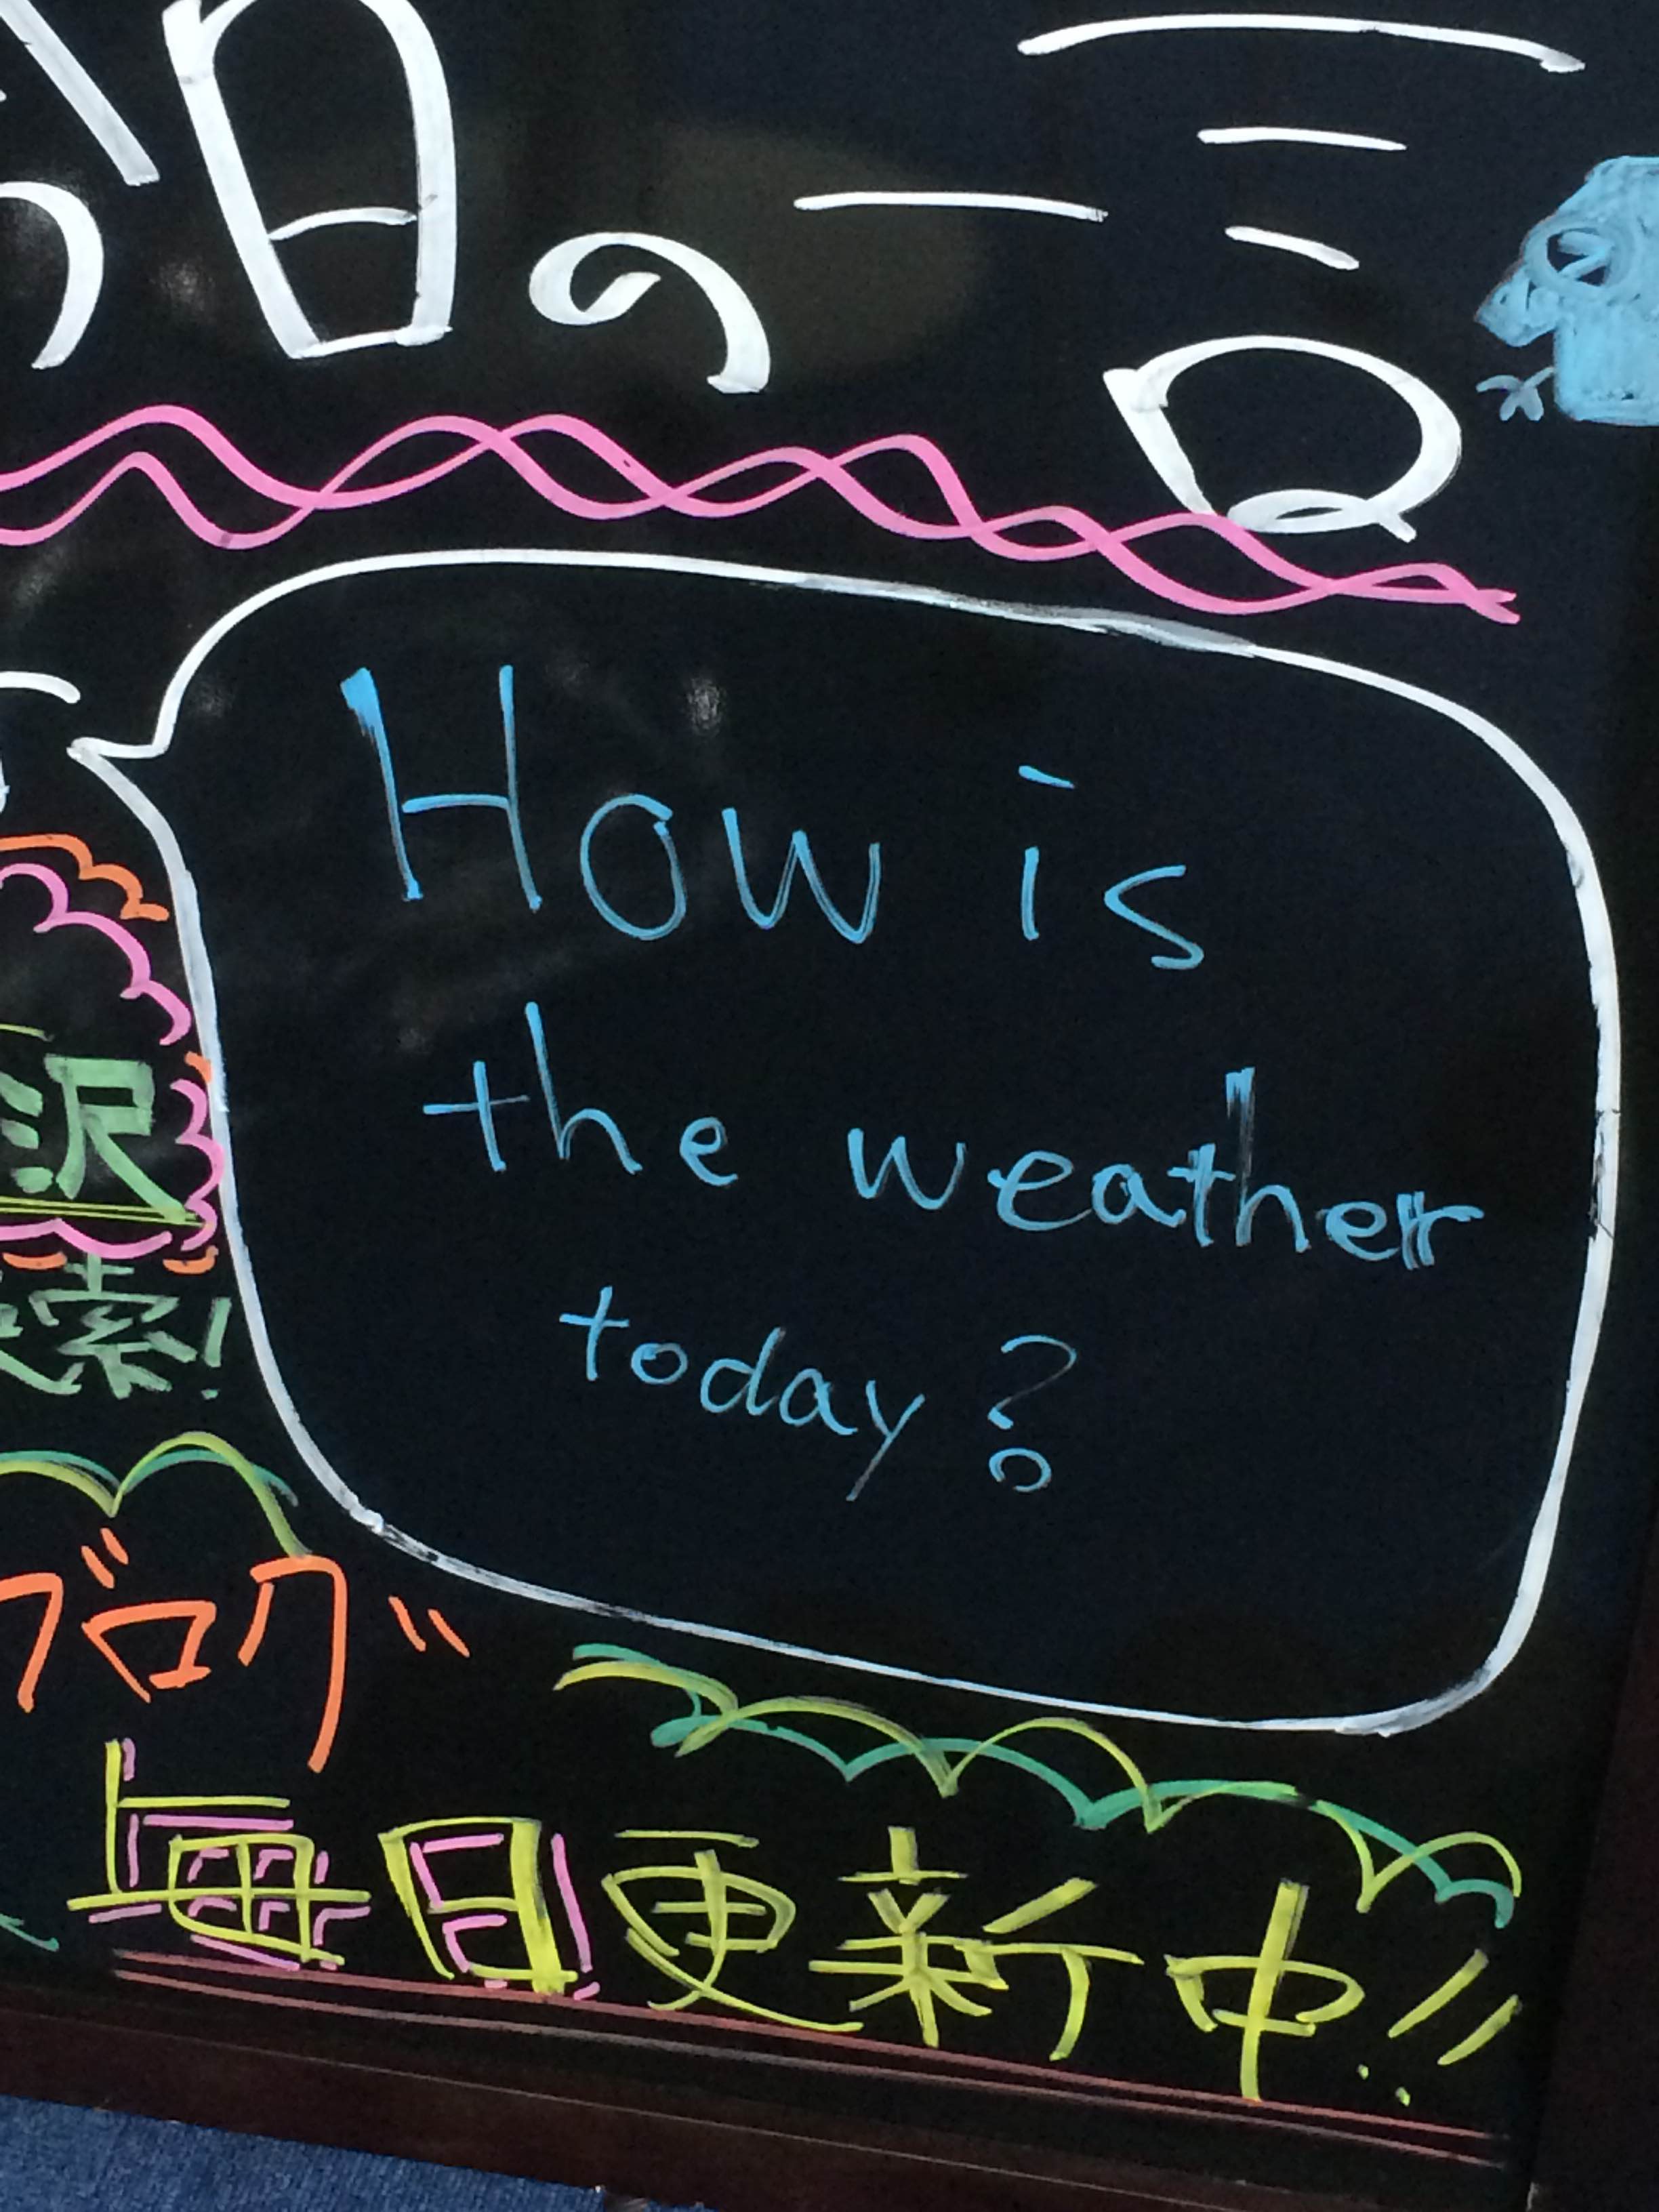 今日の一言
How is
the weather
today?
沢
検索!
ブログ
毎日更新中!!